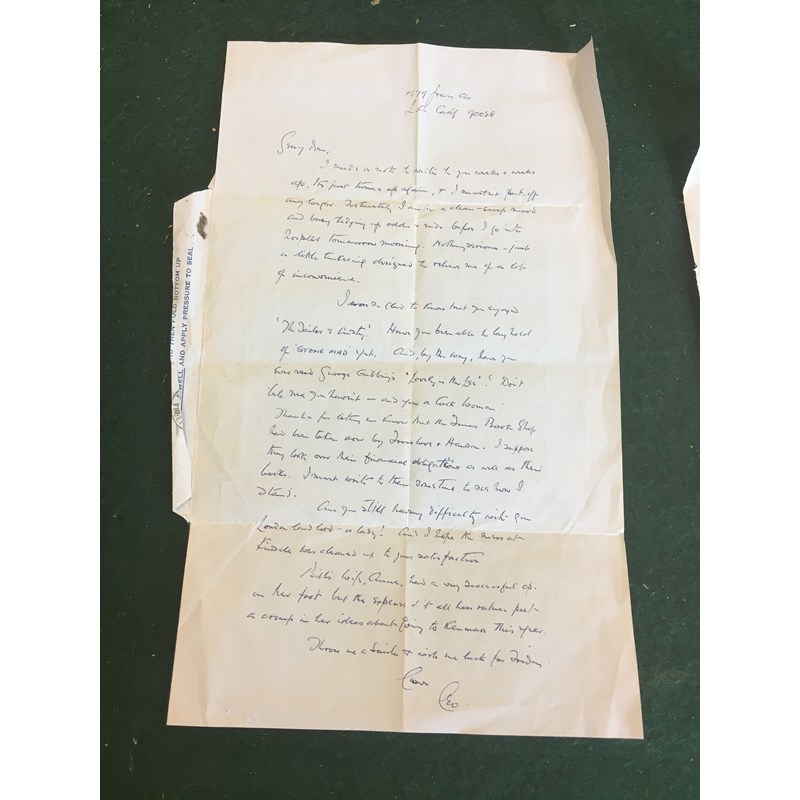 L.A. Calif 90028
I made a note to write to you weeks & weeks
ago, & I must not put off
any longer. Fortunately I am in a clean-sweep mood
and busy tidying up odds & ends before I go into
hospital tomorrow morning. Nothing serious - just
a little tinkering designed to relieve me of a lot
of inconvenience.
I was so glad to know that you enjoyed
'The Tailor & Ansty'! Have you been able to lay hold
of 'STONE MAD' yet. And, by the way, have you
ever read George Gibbings 'Lovely is the Lee'? Don't
tell me you haven't - and you a Cork woman!
Thanks for letting me know that the Book Shop
had been taken over by & . I suppose
they took over their financial obligations as well as their
books. I must write to them sometime to see how I
stand.
Are you still having difficulty with your
London landlord - or lady? And I hope the mess at
Kinsale was cleaned up to your satisfaction
wife, Anne, had a very successful op.
on her foot but the expense of it all has rather put
a crimp in her ideas about going to Kenmare this year.
Throw me a smile & wish me luck for Friday.
Geo.
AS THEN FOLD BOTTOM UP
WELL AND APPLY PRESSURE TO SEAL